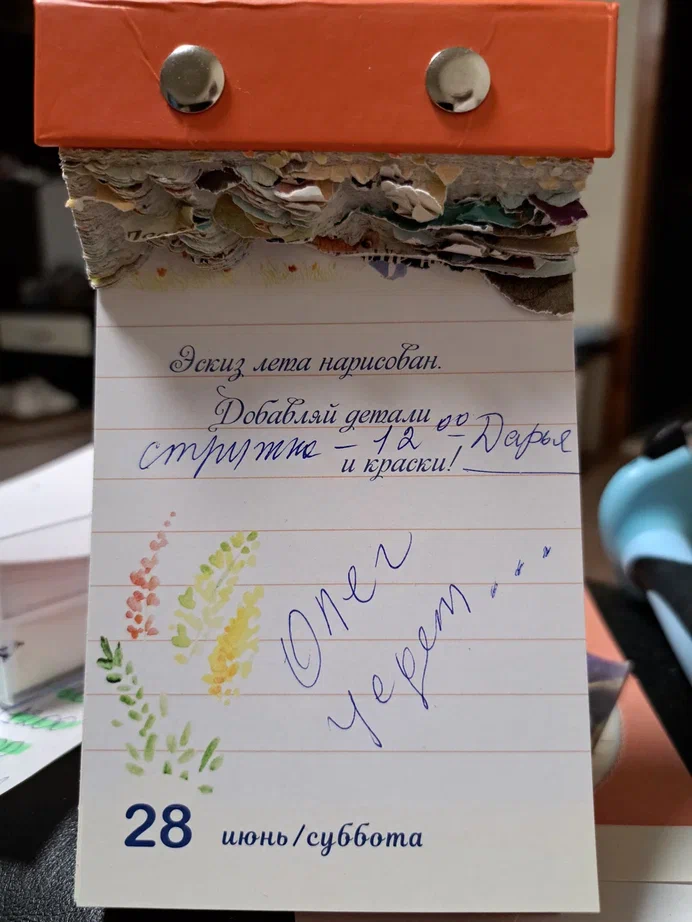 Эскиз лета нарисован.
Добавляй детали
стрижка - 12 00 - Дарья
и краски!
Олег
уедет...
28 июнь/суббота